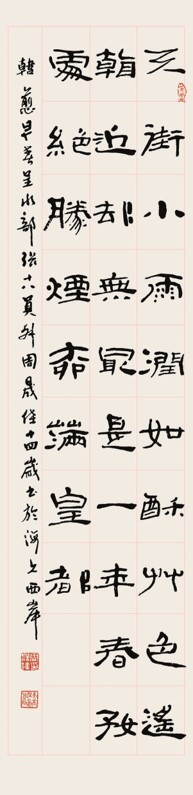 天街小雨潤如酥艸色遙
看近却無最是一年春好
處絕勝煙柳滿皇都
韓愈早春呈水部張十八員外周晟任十四歲書於海上西岸